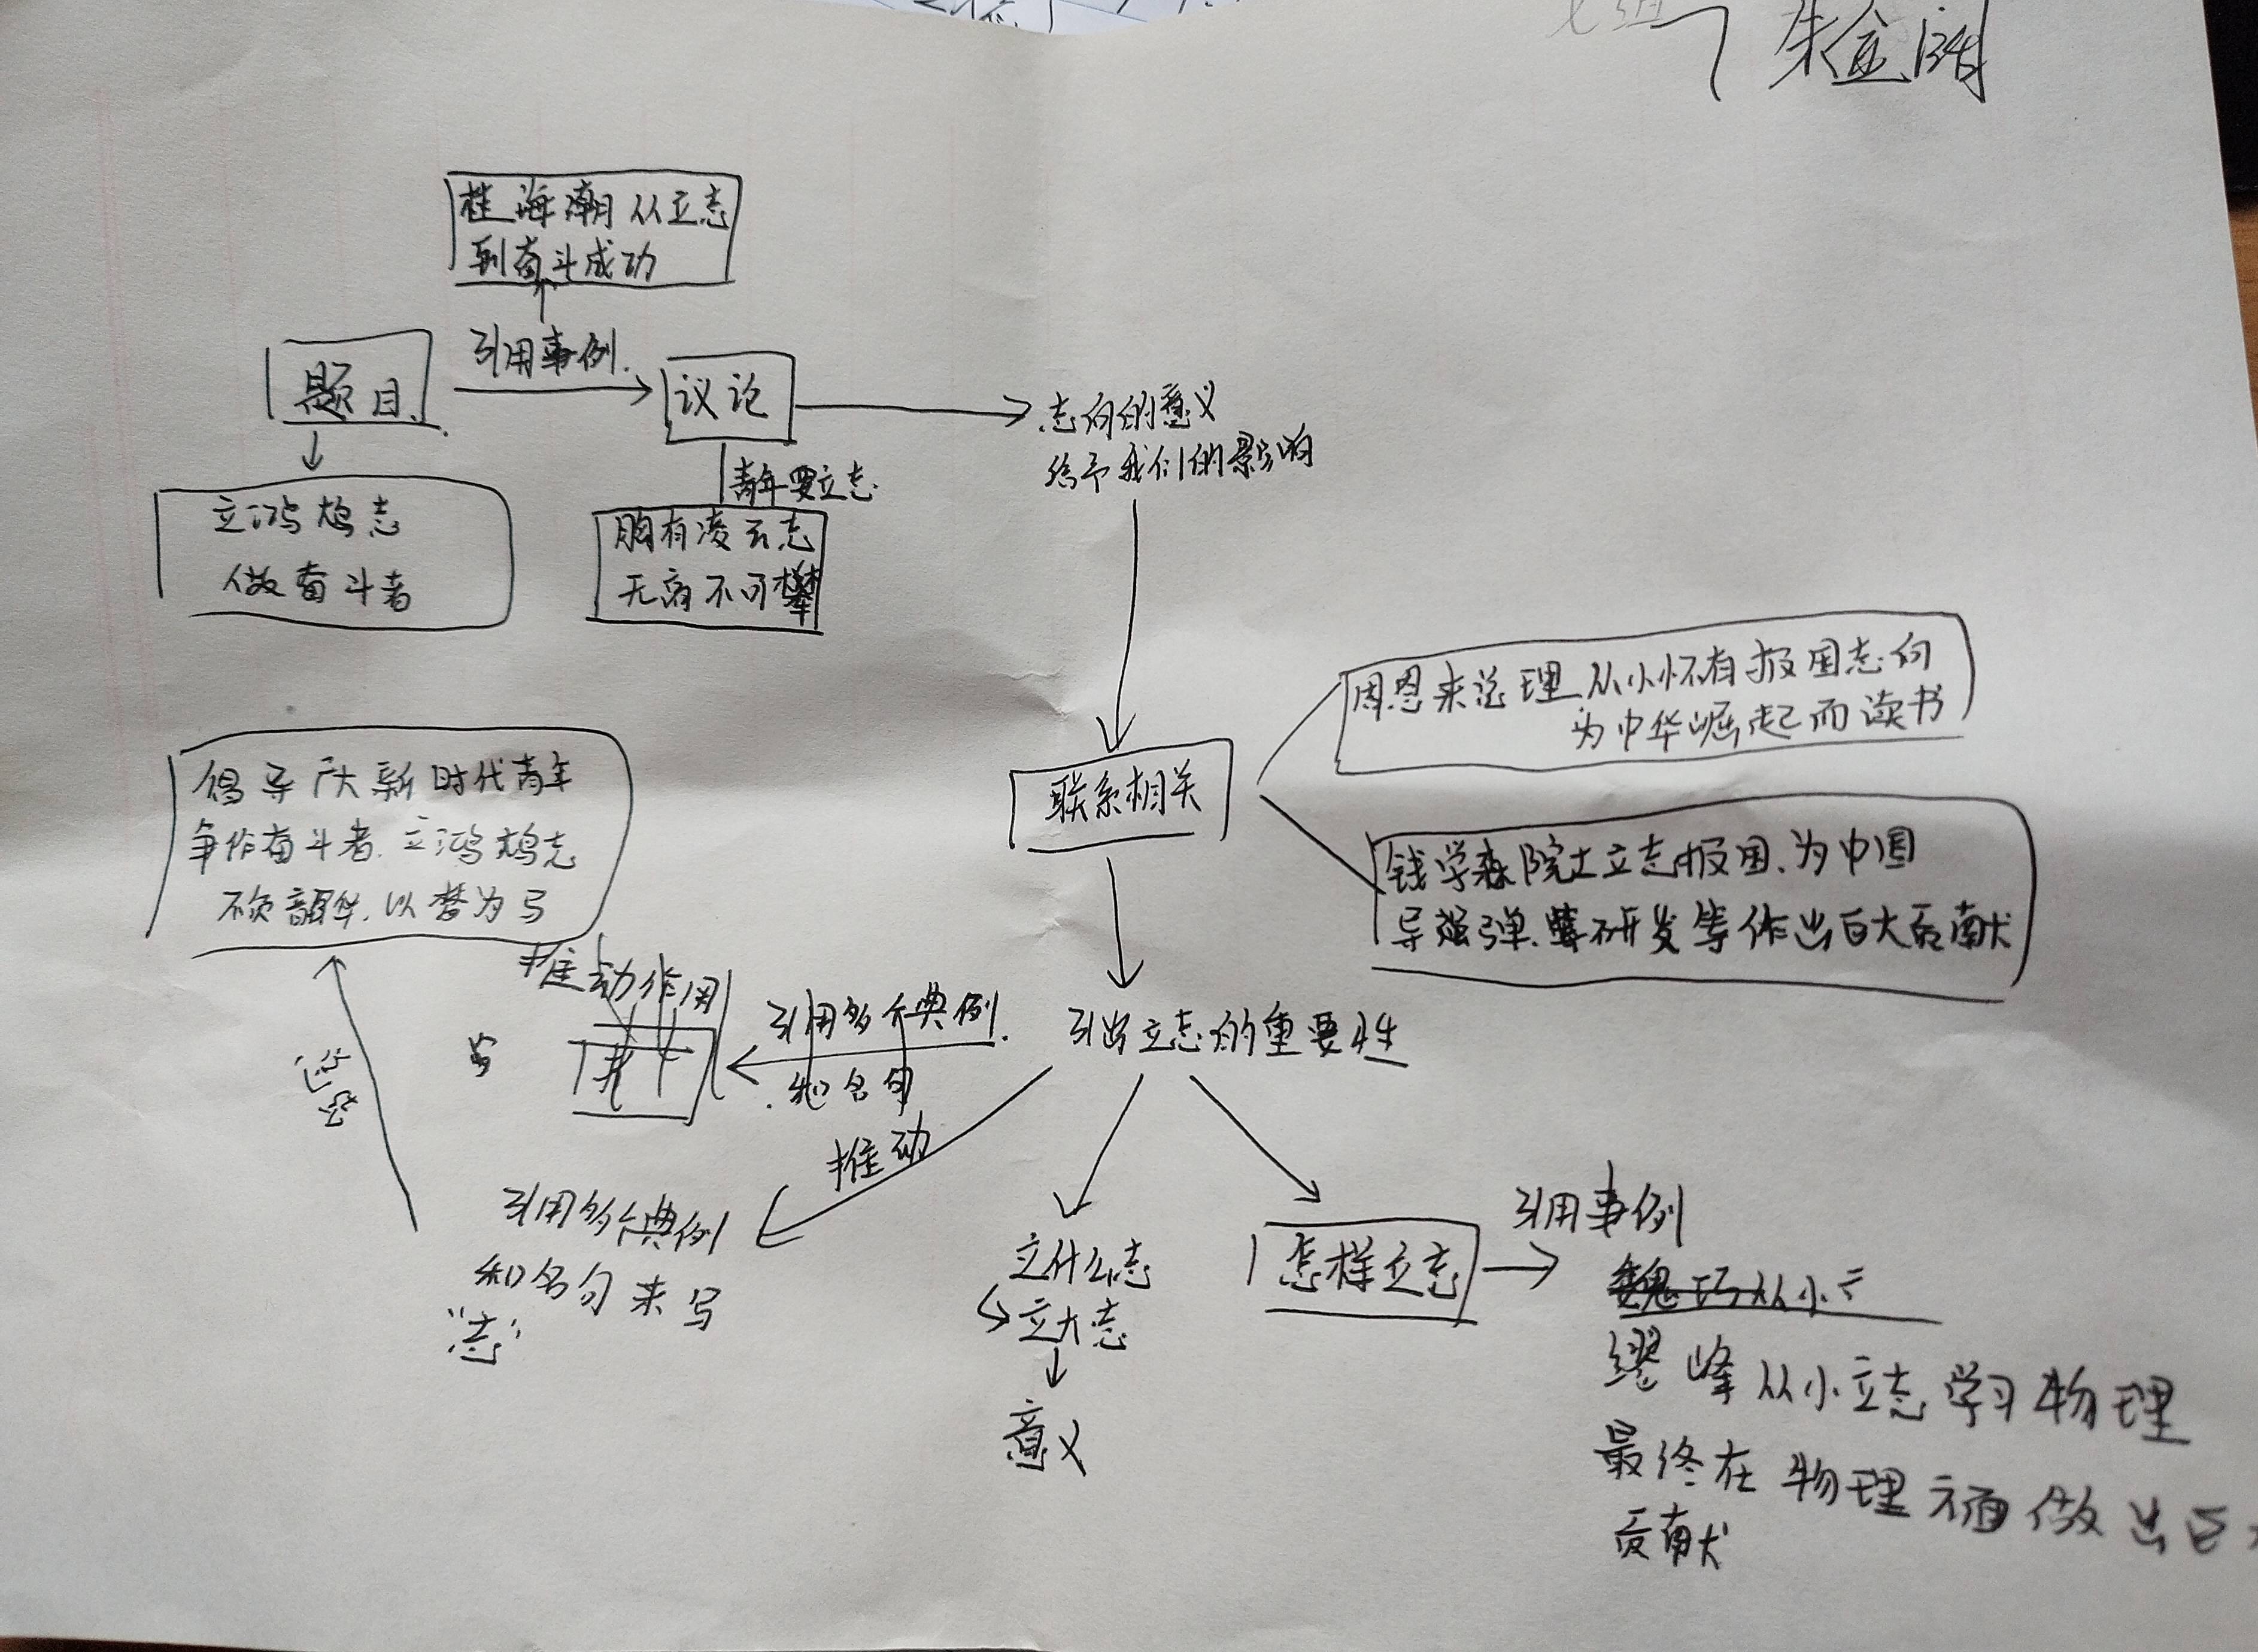 桂海潮从立志
到奋斗成功
引用事例.
题目.
议论
志向的意义
给予我们的影响
青年要立志
立鸿鹄志
做奋斗者
胸有凌云志
无高不可攀
周恩来总理从小怀有报国志向
为中华崛起而读书
联系相关
钱学森院士立志报国.为中国
导弹.研发等作出巨大贡献
倡导广大新时代青年
争作奋斗者.立鸿鹄志
不负韶华.以梦为马
推动作用
引用多个典例.
和名句
引出立志的重要性
推动
引用多个典例
和名句来写
“志”
立什么志
立大志
意义
怎样立志
引用事例
魏巧从小立
缪峰从小立志学习物理
最终在物理方面做出巨大
贡献